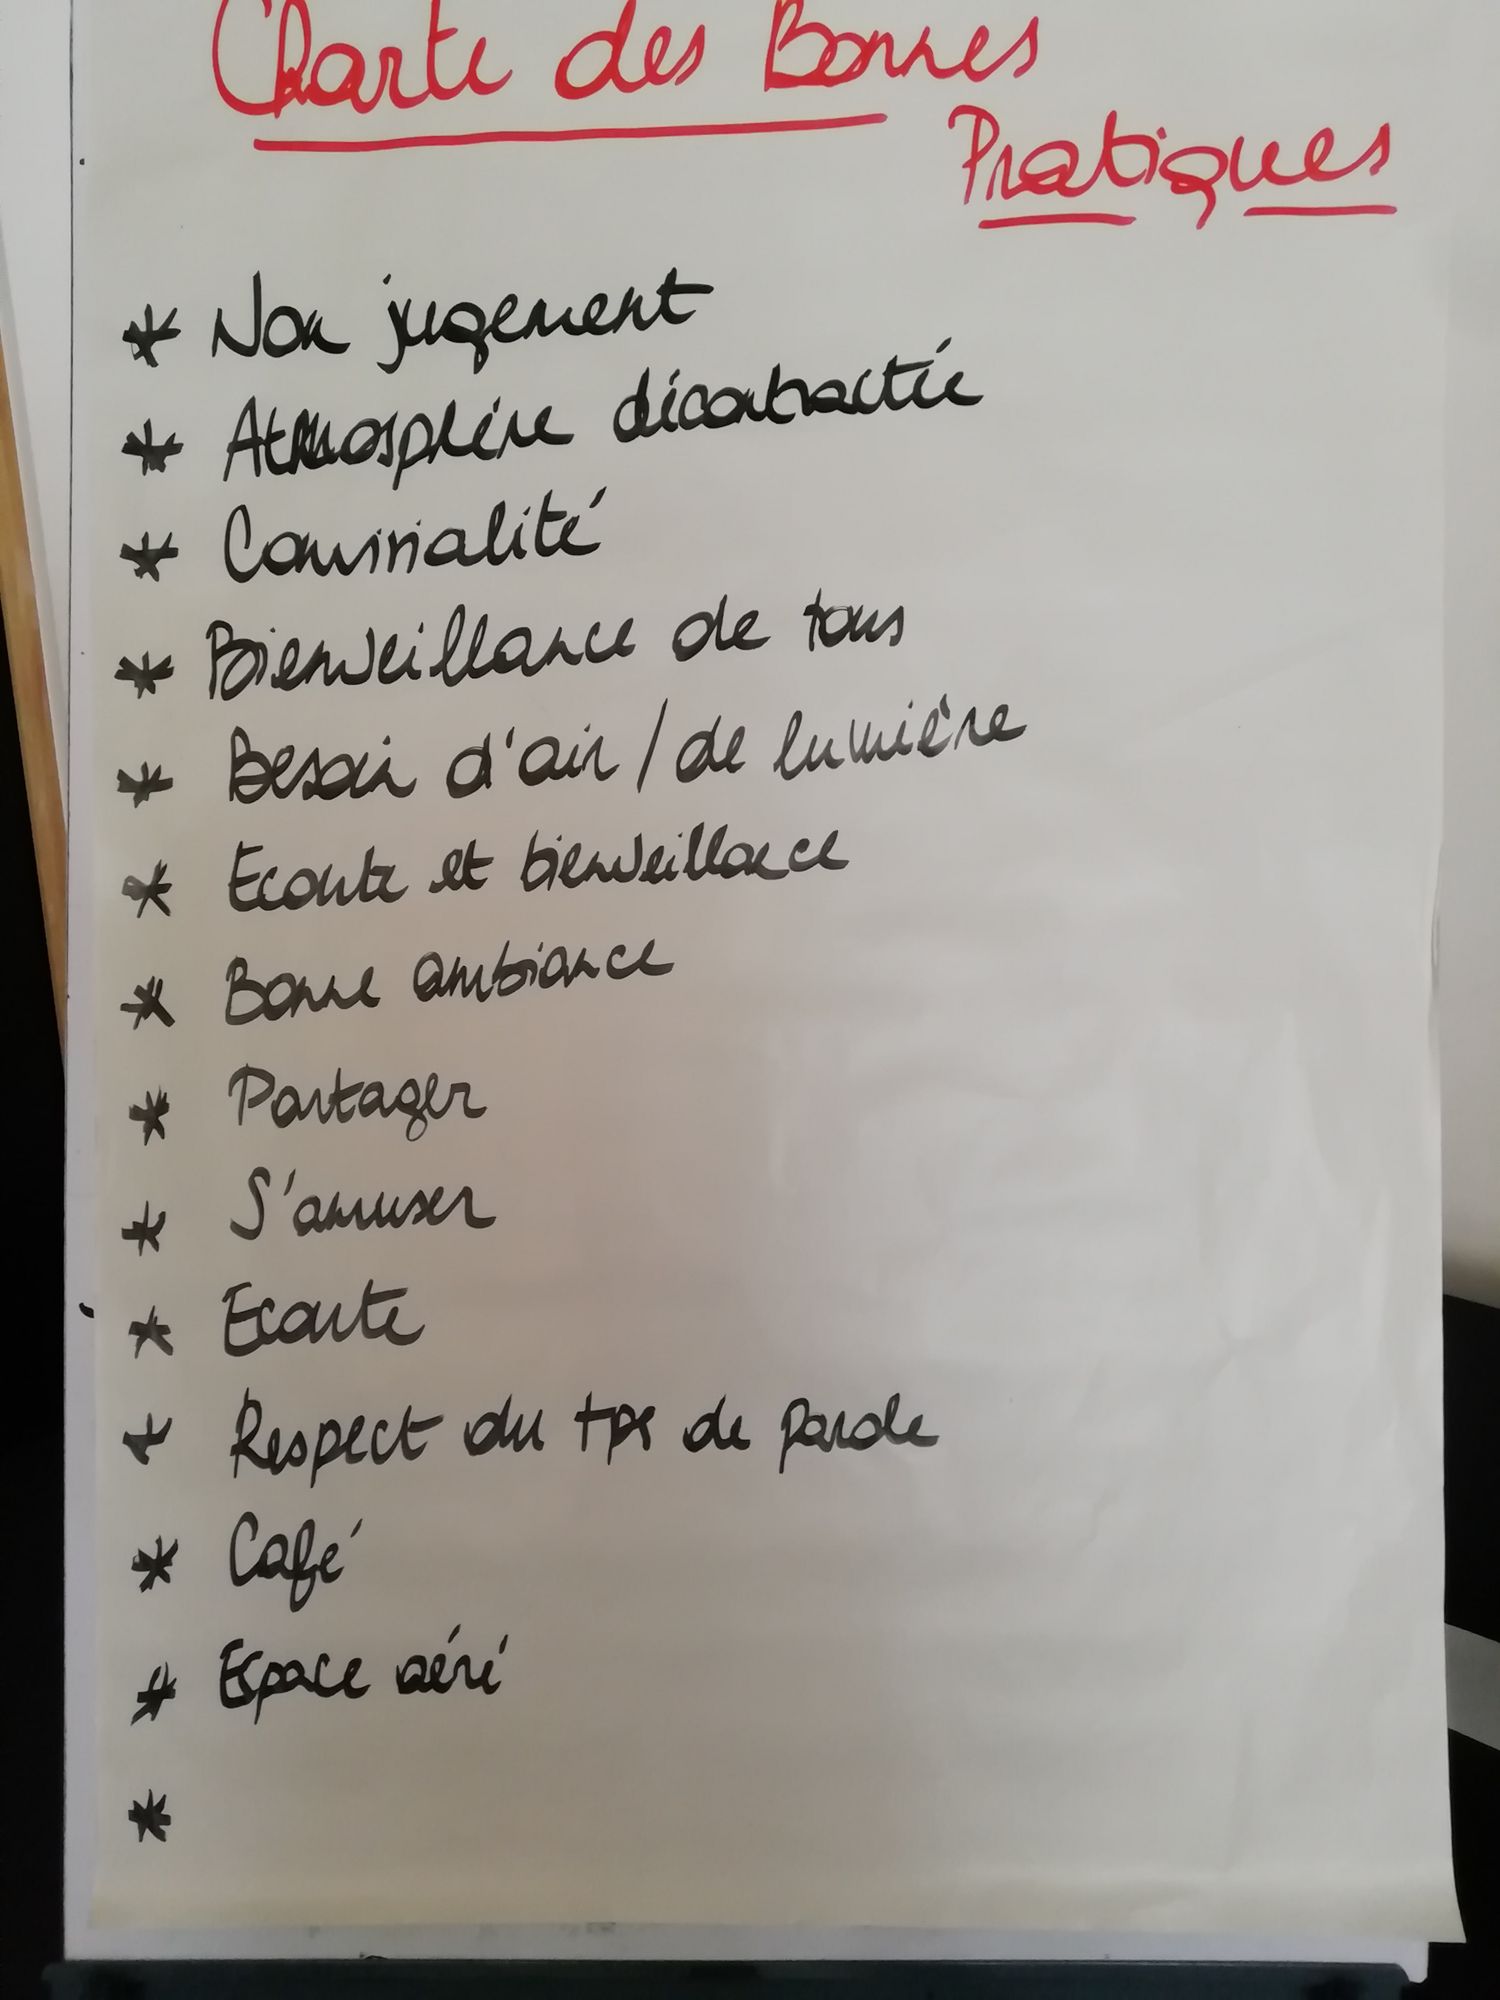 Charte des Bonnes
Pratiques
* Non jugement
* Atmosphère décontractée
* Convivialité
* Bienveillance de tous
* Besoin d'air / de lumière
* Ecoute et bienveillance
* Bonne ambiance
* Partager
* S'amuser
* Ecoute
* Respect du tps de parole
* Café
* Espace aéré
*